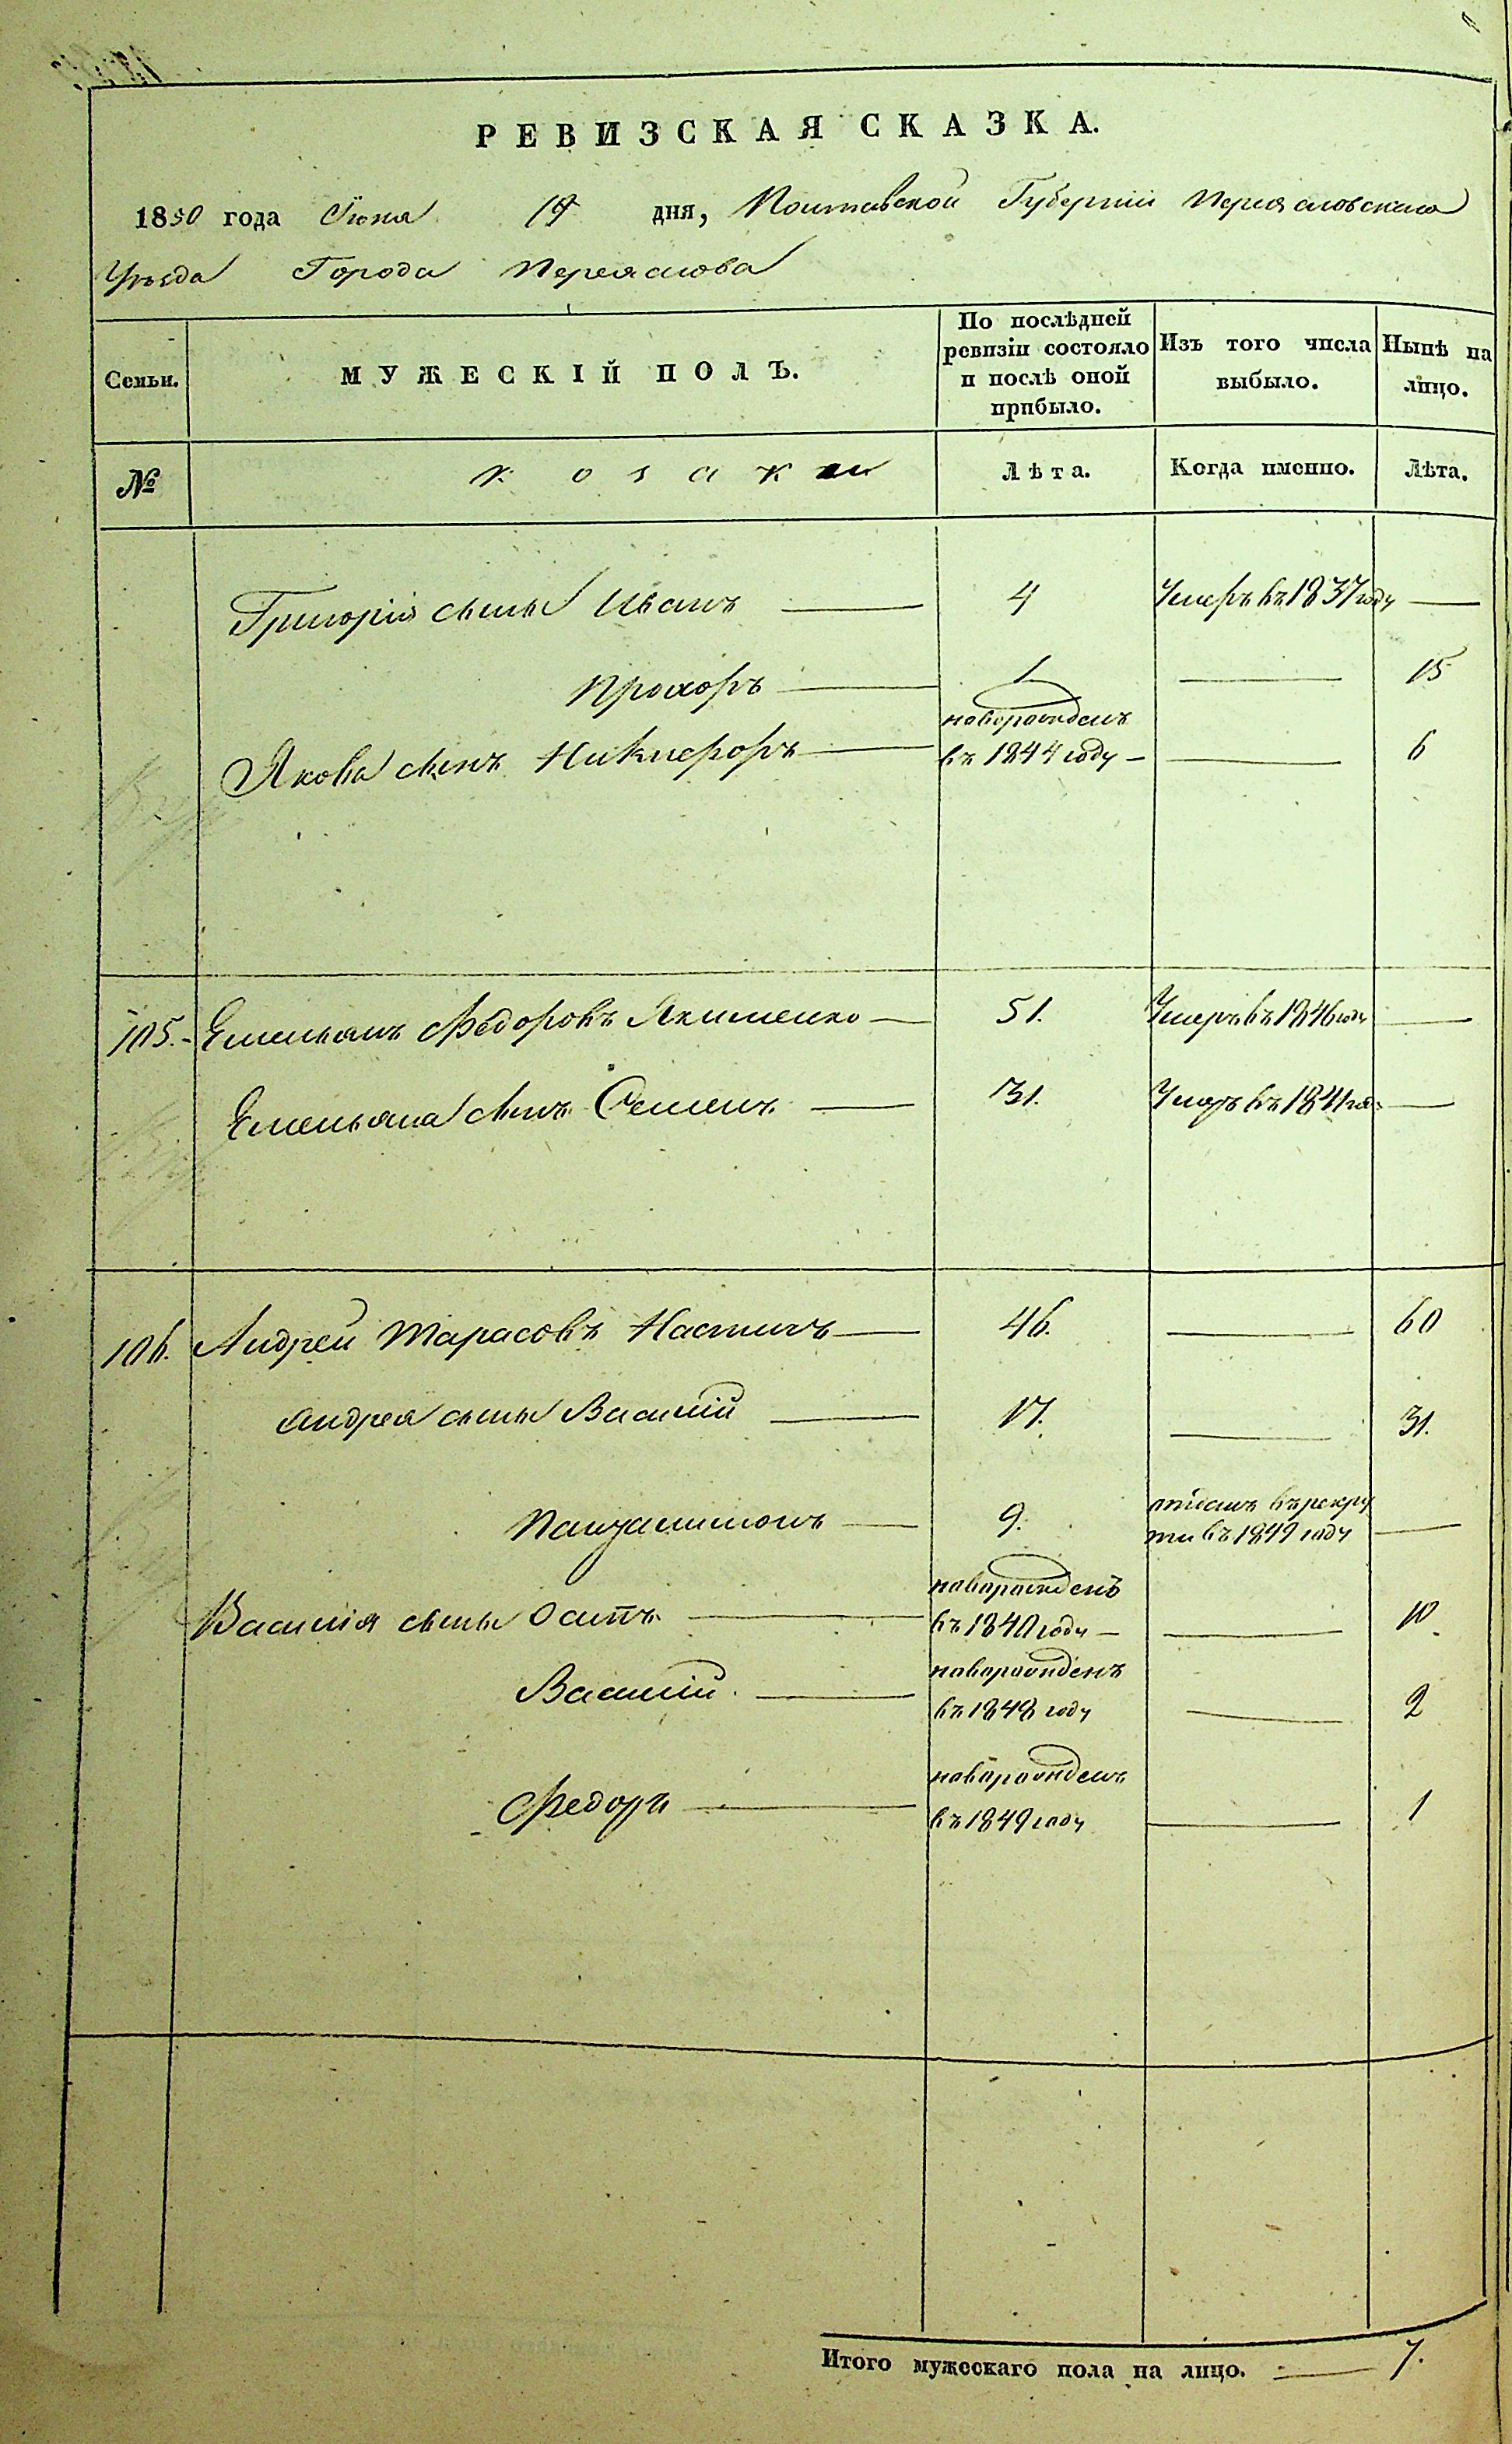 РЕВИЗСКАЯ СКАЗКА.
1850 года Июня 19 дня, Полтавской Губерніи Переясловскаго
Уѣзда Города Переяслова
Семьи.
МУЖЕСКІЙ ПОЛЪ.
По послѣдней ревизіи состояло и послѣ оной прибыло.
Изъ того числа выбыло.
Нынѣ на лицо.
№
козаки
Лѣта.
Когда именно.
Лѣта.
Григорія сыны Иванъ — 4 Умеръ въ 1837 году —
Прохоръ — 1 — 15
Якова сынъ Никифоръ — новорожденъ въ 1844 году — — 6
105. Емельянъ Федоровъ Якименко — 51. Умеръ въ 1846 году —
Емельяна сынъ Семенъ — 31. Умеръ въ 1841 году —
106. Андрей Тарасовъ Настичъ — 46. — 60
Андрея сыны Василій — 17. — 31.
Панталимонъ — 9. отданъ въ рекруты въ 1849 году —
Василія сыны Осипъ — новорожденъ въ 1840 году — — 10
Василій — новорожденъ въ 1848 году — 2
Федоръ — новорожденъ въ 1849 году — 1
Итого мужескаго пола на лицо. — 7.